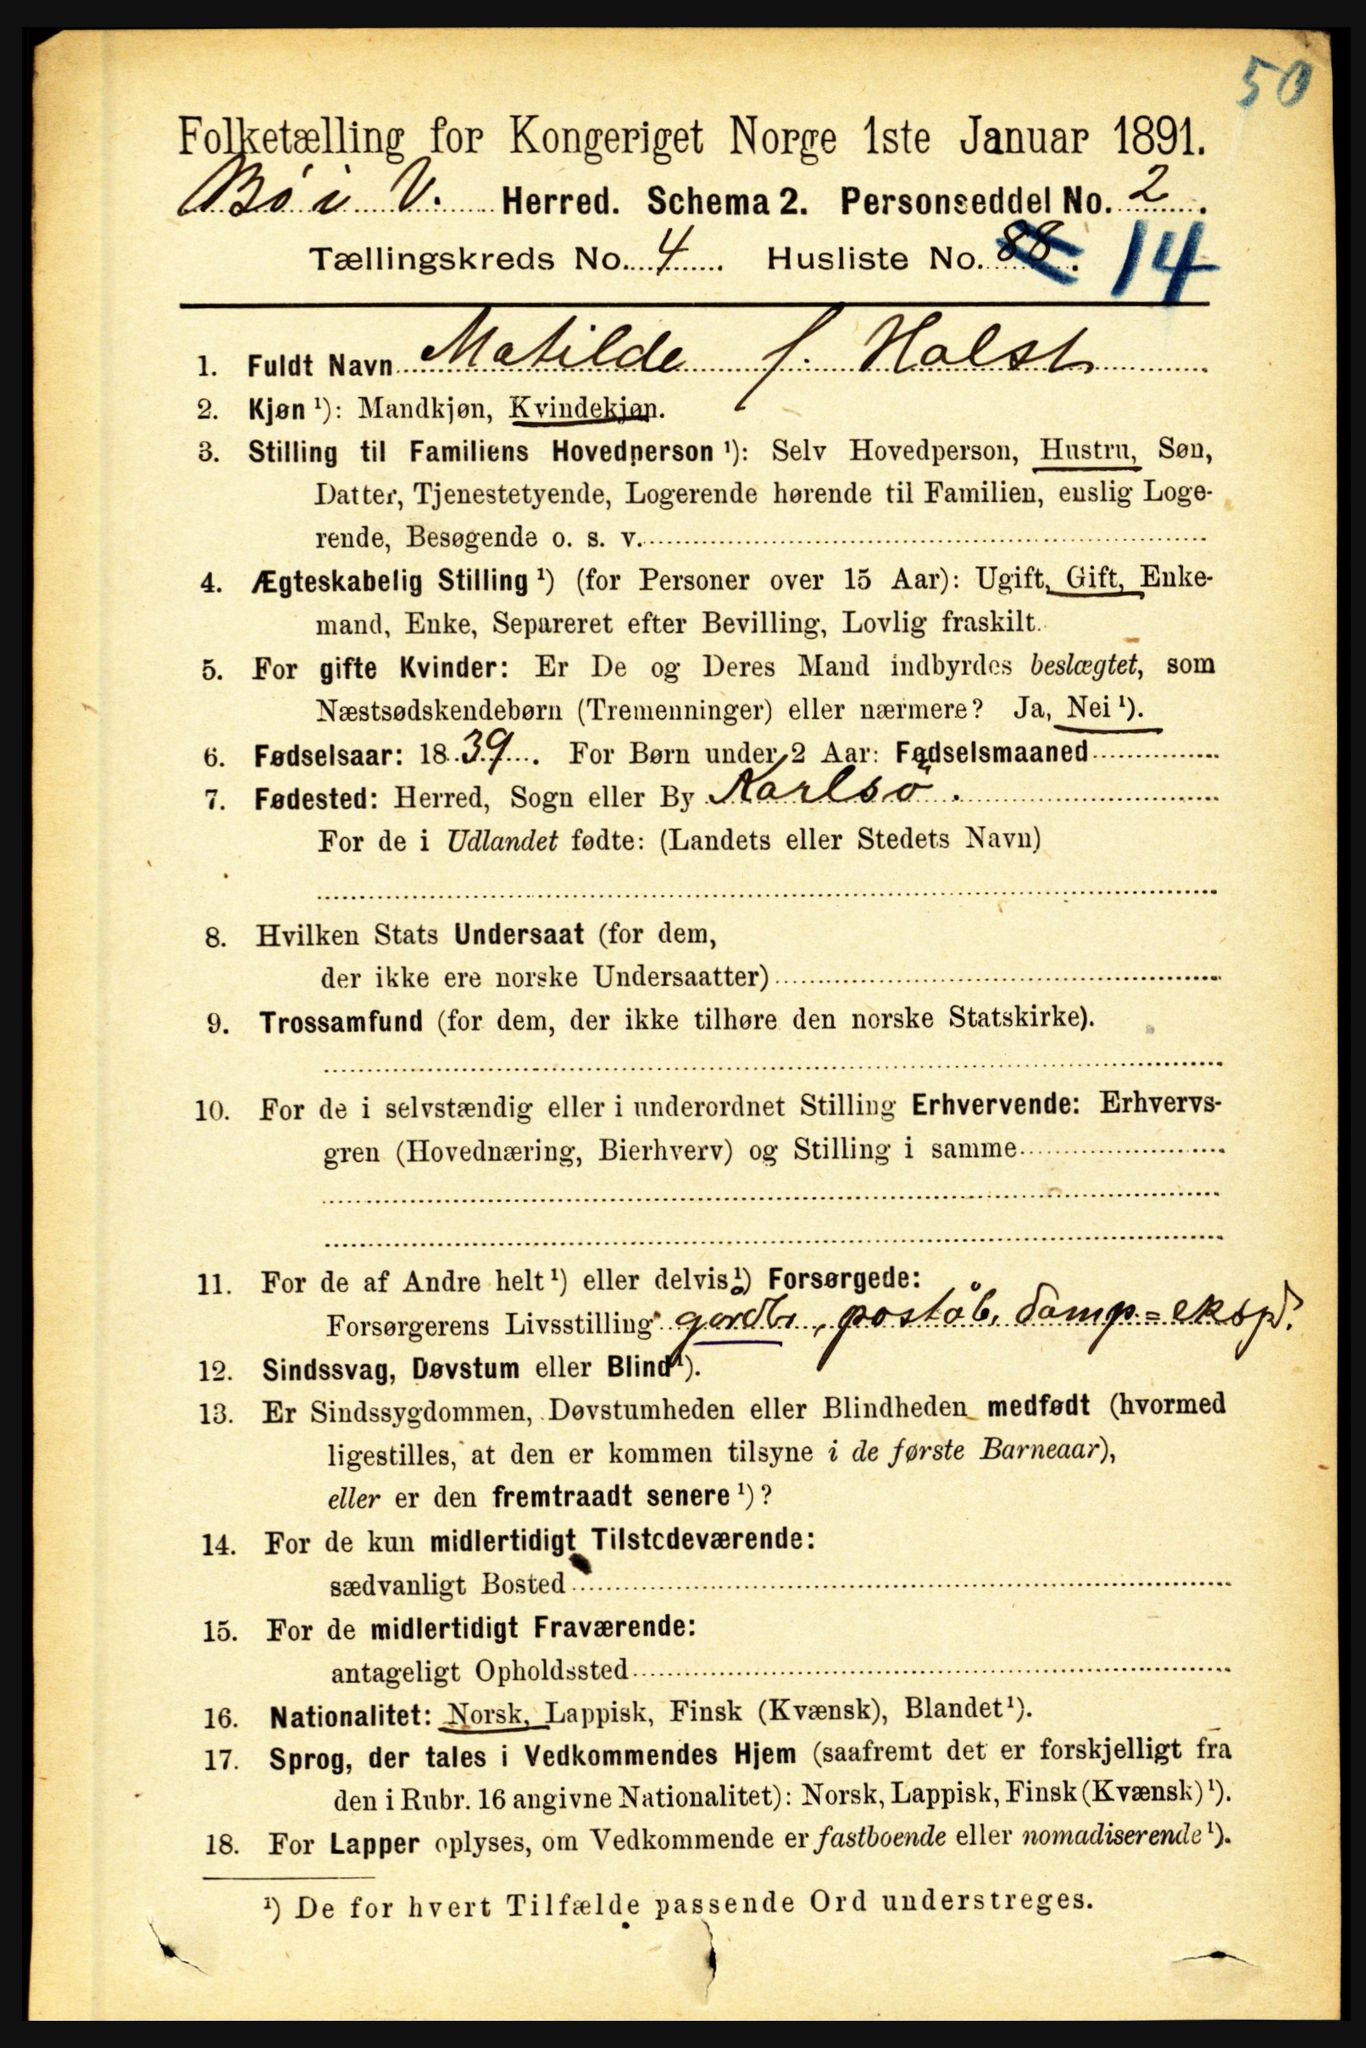 50
Folketælling for Kongeriget Norge 1ste Januar 1891.
Bö i V. Herred. Schema 2. Personseddel No. 2.
Tællingskreds No. 4. Husliste No. 88. 14
1. Fuldt Navn Matilde f. Holst
2. Kjøn ¹): Mandkjøn, Kvindekjøn.
3. Stilling til Familiens Hovedperson ¹): Selv Hovedperson, Hustru, Søn,
Datter, Tjenestetyende, Logerende hørende til Familien, enslig Loge-
rende, Besøgende o. s. v.
4. Ægteskabelig Stilling ¹) (for Personer over 15 Aar): Ugift, Gift, Enke-
mand, Enke, Separeret efter Bevilling, Lovlig fraskilt.
5. For gifte Kvinder: Er De og Deres Mand indbyrdes beslægtet, som
Næstsødskendebørn (Tremenninger) eller nærmere? Ja, Nei ¹).
6. Fødselsaar: 1839. For Børn under 2 Aar: Fødselsmaaned
7. Fødested: Herred, Sogn eller By Karlsö.
For de i Udlandet fødte: (Landets eller Stedets Navn)
8. Hvilken Stats Undersaat (for dem,
der ikke ere norske Undersaatter)
9. Trossamfund (for dem, der ikke tilhøre den norske Statskirke).
10. For de i selvstændig eller i underordnet Stilling Erhvervende: Erhvervs-
gren (Hovednæring, Bierhverv) og Stilling i samme
11. For de af Andre helt ¹) eller delvis ¹) Forsørgede:
Forsørgerens Livsstilling gårdb., poståb, damp=eksp.
12. Sindssvag, Døvstum eller Blind ¹).
13. Er Sindssygdommen, Døvstumheden eller Blindheden medfødt (hvormed
ligestilles, at den er kommen tilsyne i de første Barneaar),
eller er den fremtraadt senere ¹)?
14. For de kun midlertidigt Tilstedeværende:
sædvanligt Bosted
15. For de midlertidigt Fraværende:
antageligt Opholdssted
16. Nationalitet: Norsk, Lappisk, Finsk (Kvænsk), Blandet ¹).
17. Sprog, der tales i Vedkommendes Hjem (saafremt det er forskjelligt fra
den i Rubr. 16 angivne Nationalitet): Norsk, Lappisk, Finsk (Kvænsk) ¹).
18. For Lapper oplyses, om Vedkommende er fastboende eller nomadiserende ¹).
¹) De for hvert Tilfælde passende Ord understreges.